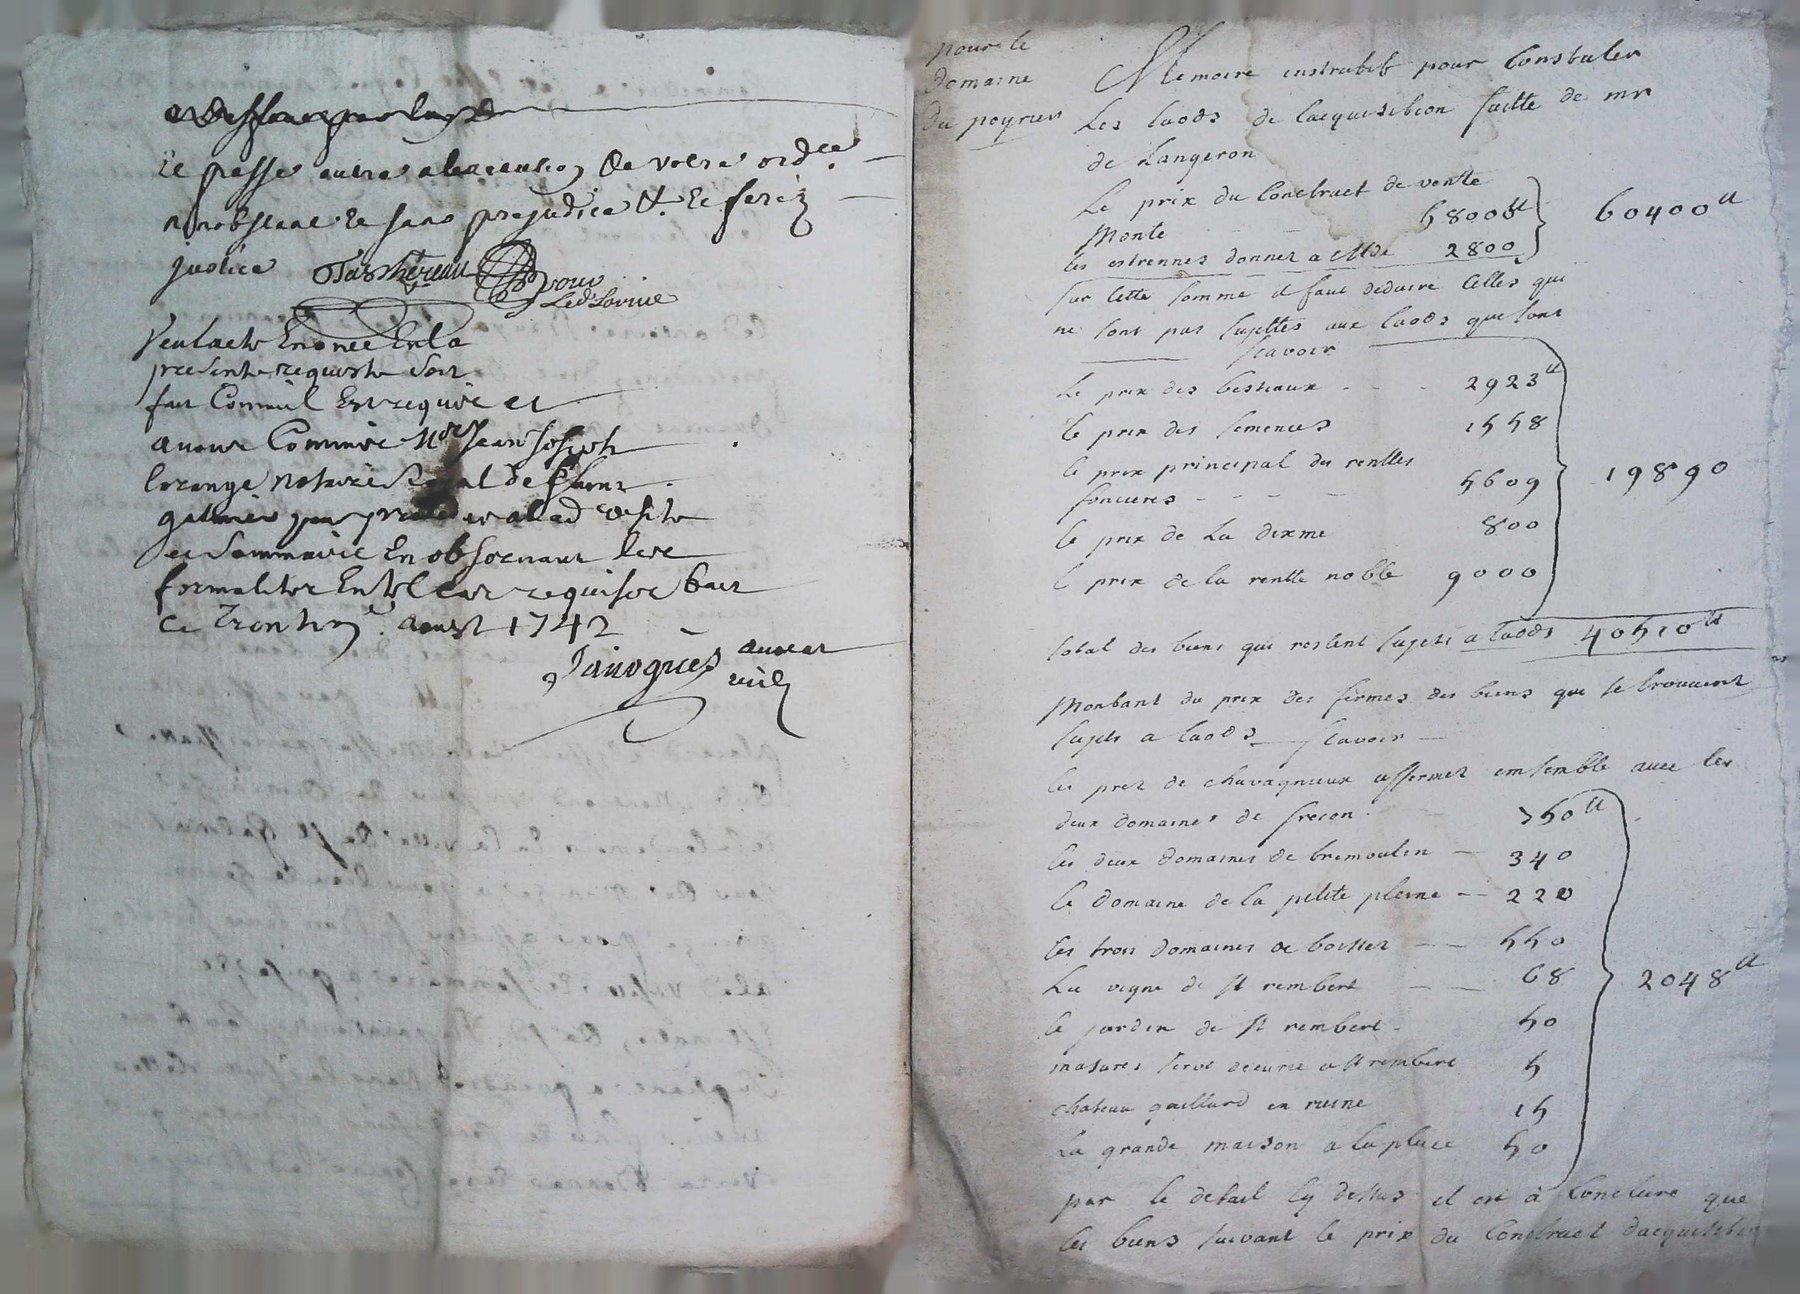 Il passé outre a lexecution de votre ordce
nonobstant et sans prejudice &. Et ferez
justice Tashereau pour
Led. Lavine
Veu lacte Enoncé En la
presente requeste soit
fait Comme Est requis et
avons Commis Me Jean Joseph
lorange notaire Royal de St
galmier pour proceder a lad visite
et Sommaire En observant les
formalites En tel cas requises fait
Ce Trentiem. aoust 1742
Janogues
pour le
Domaine
Du poyrus
Memoire instructif pour Constater
Les laods de lacquisition faitte de mr
de Langeron
Le prix du Contract de vente
Monte 58000tt
les estrennes donnez a Mde 2800
60400tt
sur cette somme il faut deduire celles qui
ne sont pas sujettes aux laods que sont
scavoir
Le prix des bestiaux 2923tt
le prix des semences 1558
le prix principal des renttes
foncieres 5609
le prix de La dixme 800
l prix de la rentte noble 9000
19890
total des biens qui restent sujets a laods 40510tt
Montant du prix des fermes des biens que se trouvent
sujets a laods scavoir
les prez de chavagnieux affermez ensemble avec les
deux domaines de frecon 750tt
les deux domaines de bremoulin 340
le domaine de la petite pleine 220
les trois domaines de boisset 550
La vigne de st rembert 68
le jardin de st rembert 50
masures serve decurie a st rembert 5
chateau gaillard en ruine 15
La grande maison a la place 50
2048tt
par le detail cy dessus il est à conclure que
les biens suivant le prix du Contract dacquisition